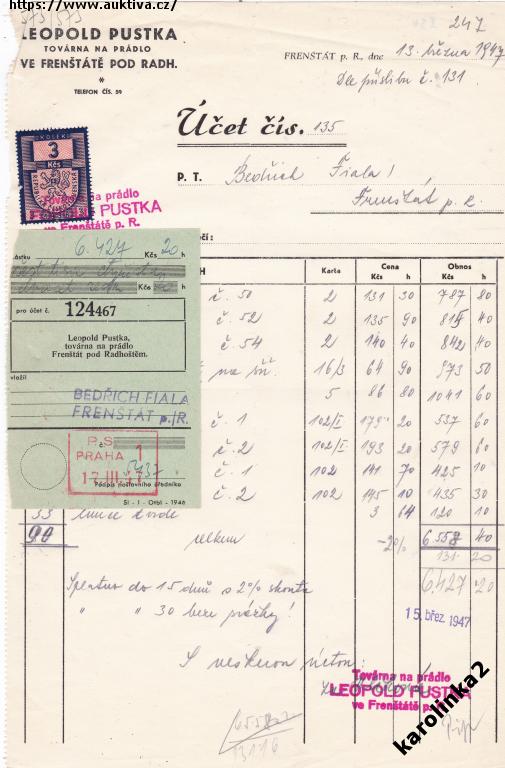 https://www.auktiva.cz/
573/573
247
LEOPOLD PUSTKA
TOVÁRNA NA PRÁDLO
VE FRENŠTÁTĚ POD RADH.
*
TELEFON ČÍS. 59
FRENŠTÁT p. R., dne 13. března 1947
Dle příslibu č. 131
Účet čís. 135
P. T. Bedřich Fiala!
Frenštát p. R.
KOLEK
3
Kčs
na prádlo
PUSTKA
ve Frenštátě p. R.
6.427 Kčs 20 h
Kčs h
pro účet č. 124467
Leopold Pustka,
továrna na prádlo
Frenštát pod Radhoštěm.
vložil
BEDŘICH FIALA
FRENŠTÁT p./R.
P.S.
PRAHA 1
17.III.47
5437
Podpis poštovního úředníka
Sl - I - Otbl - 1946
H Karta Cena Obnos
Kčs h Kčs h
č. 50 2 131 30 787 80
č. 52 2 135 90 815 40
č. 54 2 140 40 842 40
na 16/3 64 90 973 50
5 86 80 1041 60
č. 1 102/I 179 20 537 60
č. 2 102/I 193 20 579 60
č. 1 102 141 70 425 10
č. 2 102 145 10 435 30
33 3 64 120 10
90 celkem 6.558 40
-2% 131 20
6.427 20
Splatno do 15 dnů s 2% skonta
" " 30 beze srážky!
15. břez. 1947
S veškerou úctou:
Továrna na prádlo
LEOPOLD PUSTKA
ve Frenštátě p. R.
13116
karolinka2